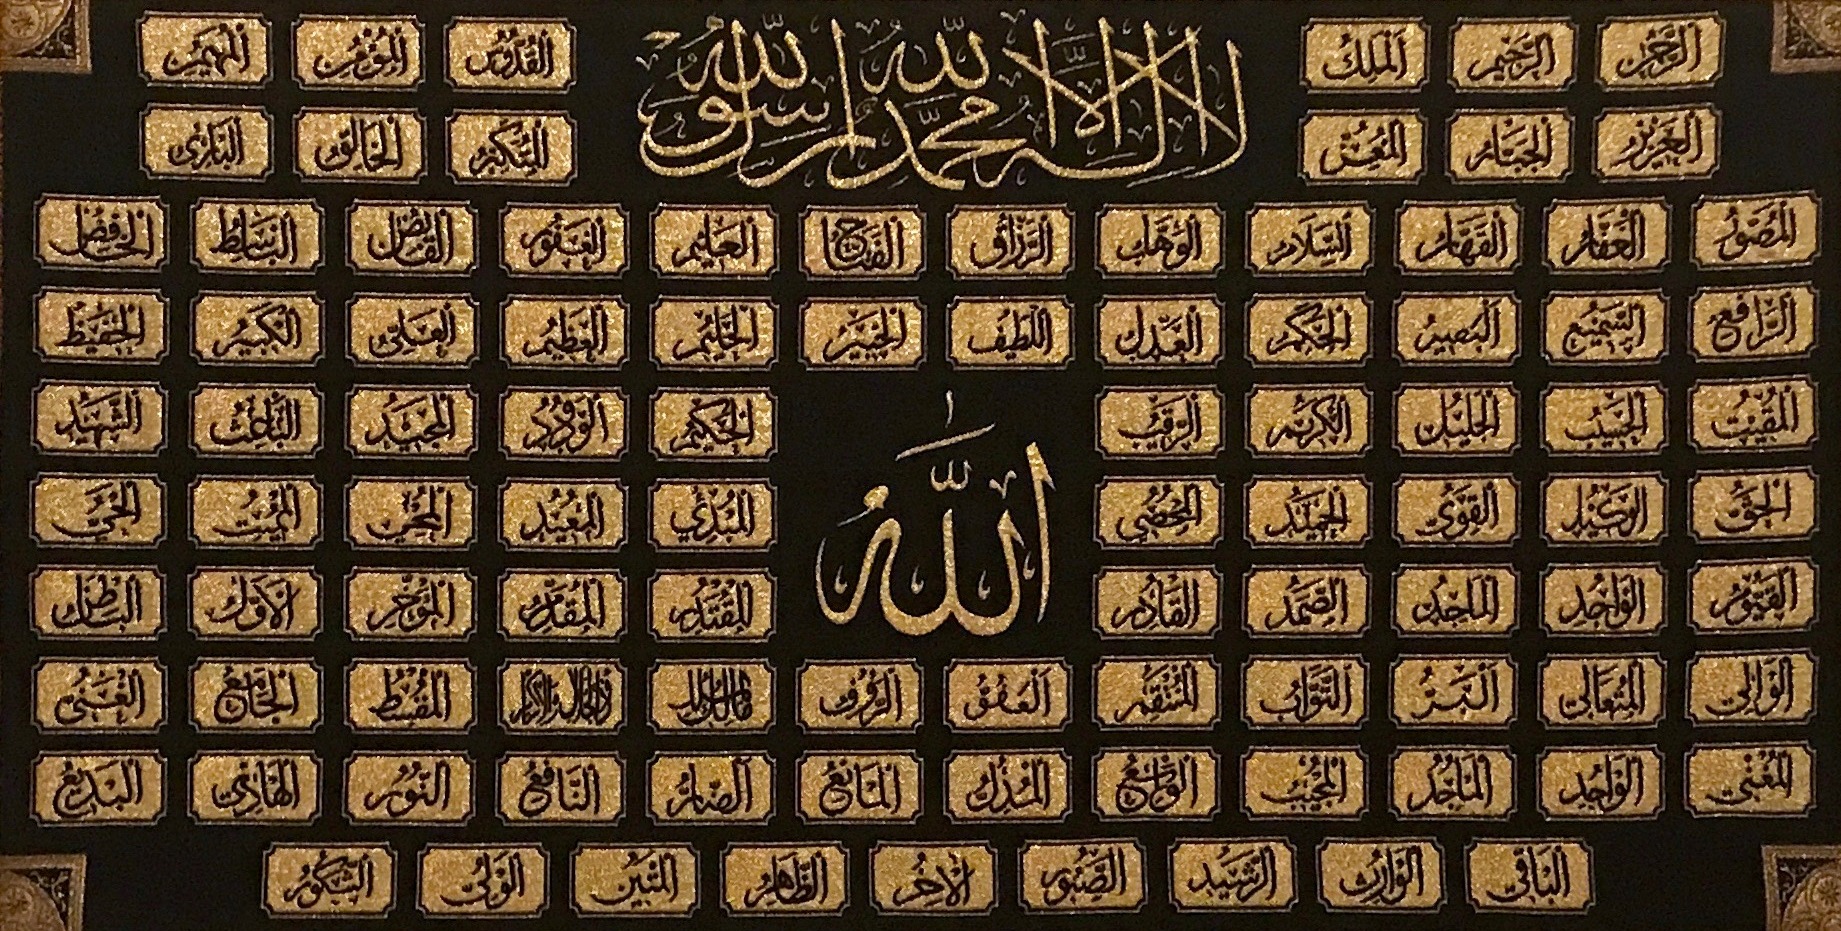 الرحمن الرحيم الملك لا إله إلا الله محمد رسول الله القدوس المؤمن المهيمن
العزيز الجبار المعز المتكبر الخالق البارئ
المصور الغفار القهار السلام الوهاب الرزاق الفتاح العليم الغفور القابض الباسط الخافض
الرافع السميع البصير الحكم العدل اللطيف الخبير الحليم العظيم العلي الكبير الحفيظ
المقيت الحسيب الجليل الكريم الرقيب الحكيم الودود المجيد الباعث الشهيد
الله
الحق الوكيل القوي الحميد المحصي المبدئ المعيد المحيي المميت الحي
القيوم الواجد الماجد الصمد القادر المقتدر المقدم المؤخر الأول الباطن
الوالي المتعالي البر التواب المنتقم العفو الرؤوف مالك الملك ذو الجلال والإكرام المقسط الجامع الغني
المغني الواحد الماجد المجيب الواسع المذل المانع الضار النافع النور الهادي البديع
الباقي الوارث الرشيد الصبور الآخر الظاهر المتين الولي الشكور